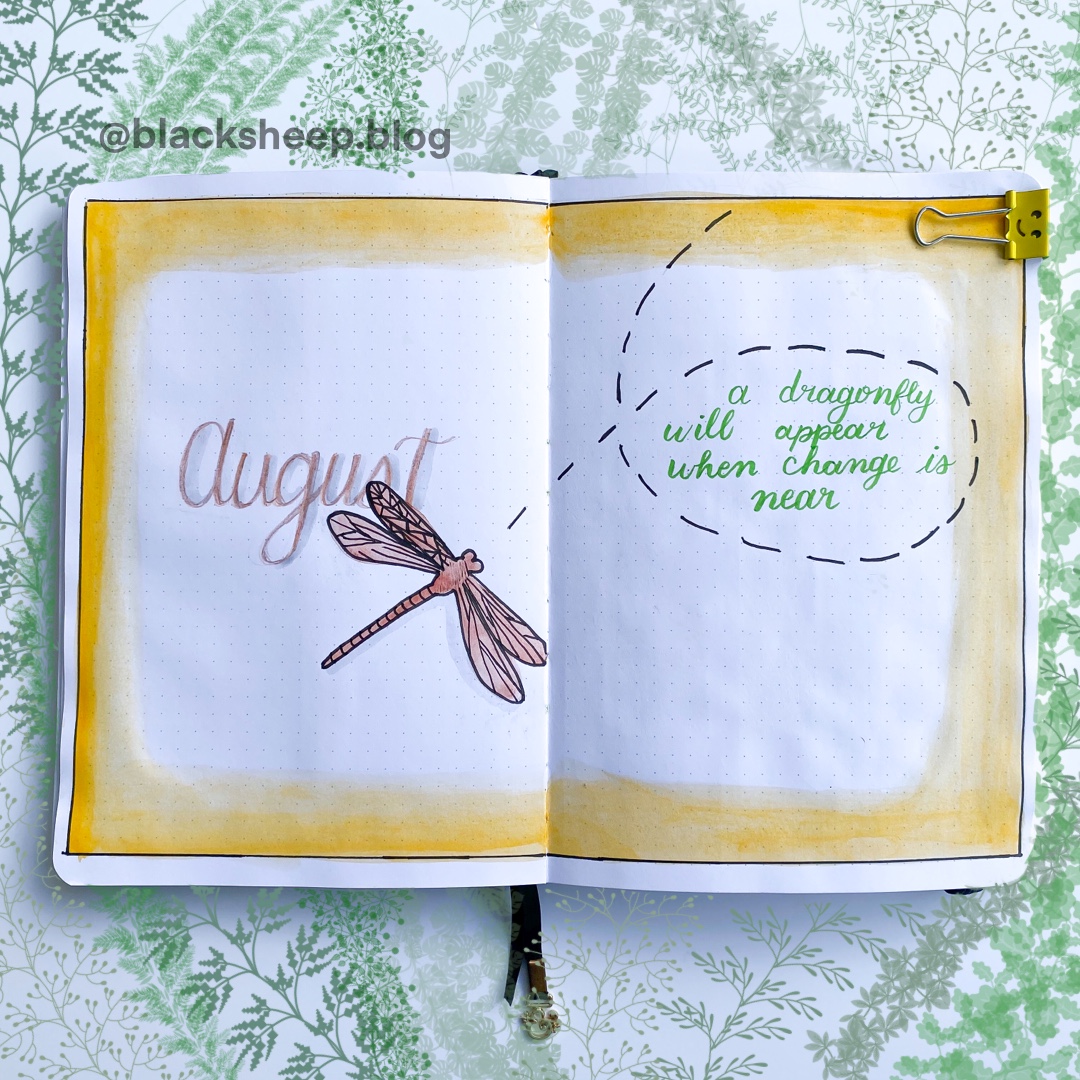 @blacksheep.blog
august
a dragonfly
will appear
when change is
near